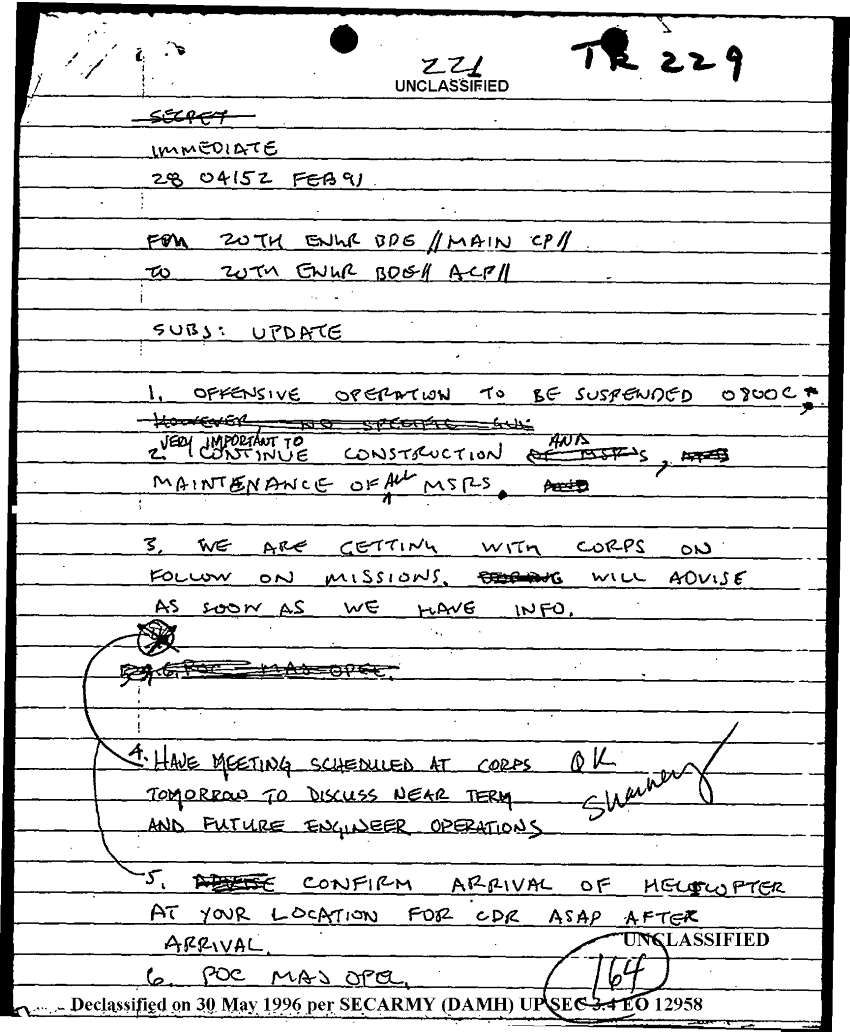 221
TR 229
UNCLASSIFIED
SECRET
IMMEDIATE
28 0415Z FEB 91
FM 20TH ENGR BDE //MAIN CP//
TO 20TH ENGR BDE// ACP//
SUBJ: UPDATE
1. OFFENSIVE OPERATION TO BE SUSPENDED 0800C *
HOWEVER, NO SPECIFIC
VERY IMPORTANT TO AND
2. CONTINUE CONSTRUCTION OF MSR'S, AND
MAINTENANCE OF ALL MSRS. AND
3. WE ARE GETTING WITH CORPS ON
FOLLOW ON MISSIONS. WILL ADVISE
AS SOON AS WE HAVE INFO.
POC MAJ OPEL.
4. HAVE MEETING SCHEDULED AT CORPS OK
TOMORROW TO DISCUSS NEAR TERM
AND FUTURE ENGINEER OPERATIONS
5. ADVISE CONFIRM ARRIVAL OF HELICOPTER
AT YOUR LOCATION FOR CDR ASAP AFTER
ARRIVAL.
UNCLASSIFIED
6. POC MAJ OPEL.
164
Declassified on 30 May 1996 per SECARMY (DAMH) UP SEC 3.4 EO 12958